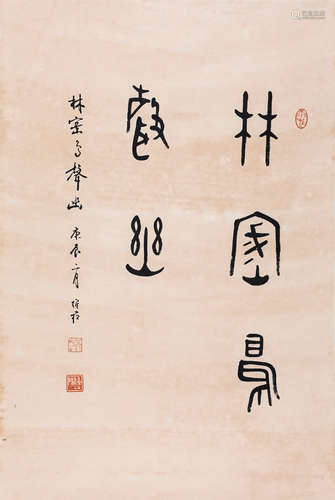 林密鳥
聲幽
林密鳥聲幽 庚辰一月